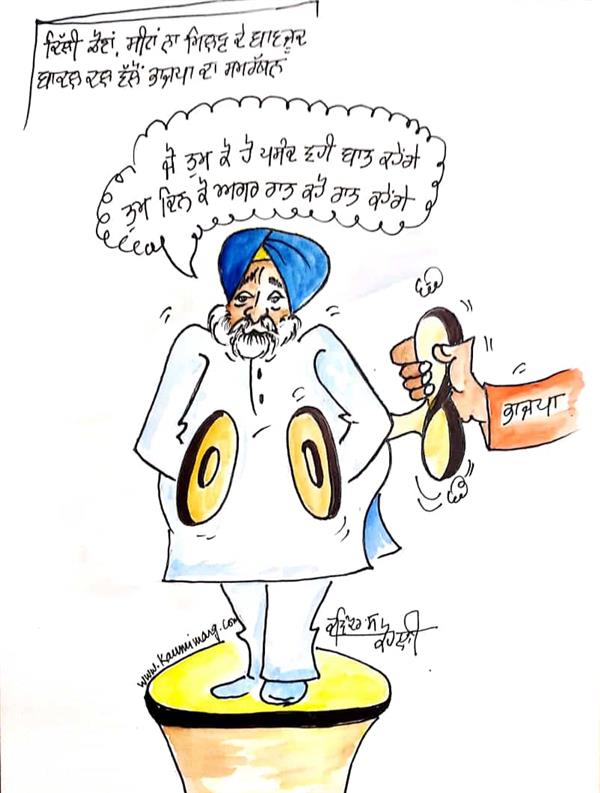 ਦਿੱਲੀ ਚੋਣਾਂ, ਸੀਟਾਂ ਨਾ ਮਿਲਣ ਦੇ ਬਾਵਜੂਦ
ਬਾਦਲ ਦਲ ਵੱਲੋਂ ਭਾਜਪਾ ਦਾ ਸਮਰੱਥਨ
ਜੋ ਤੁਮ ਕੋ ਹੋ ਪਸੰਦ ਵਹੀ ਬਾਤ ਕਹੇਂਗੇ
ਤੁਮ ਦਿਨ ਕੋ ਅਗਰ ਰਾਤ ਕਹੋ ਰਾਤ ਕਹੇਂਗੇ
ਭਾਜਪਾ
www.kaumimarg.com